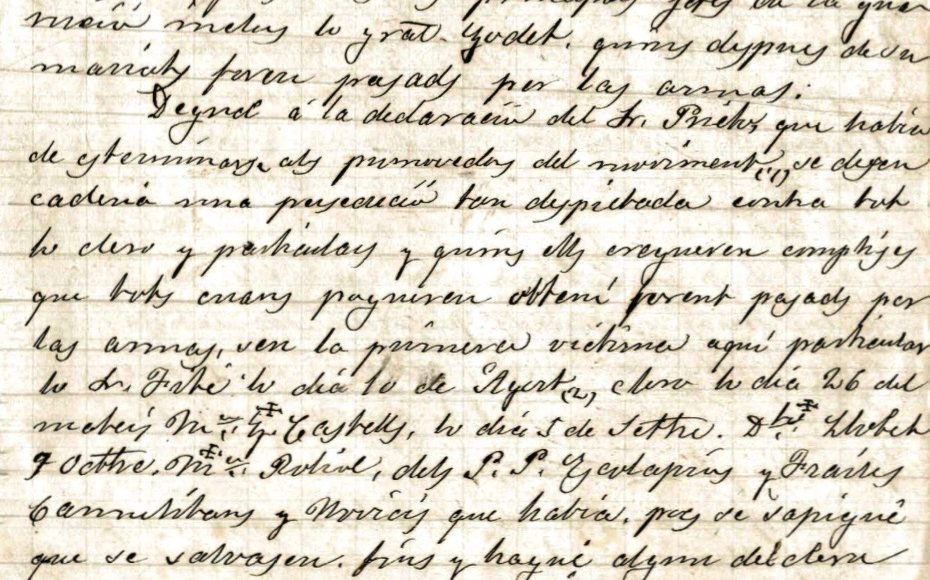 principals jefes de la guar
nició menos lo gral. Godet, quins despues de su
mariats foren pasads per las armas.
Degut á la declaració del Sr. Prieto, que habia
de esterminarse als pumovedos del moviment (1), se desen
cadená una persecució tan despietada contra tot
lo clero y particulars y quins ells creyueren complises
que tots cuans pogueren obtení forent pasads per
las armas, sen la primera victima aquí particular
lo Sr. Fité lo dia 10 de Agost (2), clero lo dia 26 del
mateix Mn. Castells, lo dia 5 de Setbre. Dr. Llobet
7 Octbre. Mn. Ribot, dels P. P. Escolapius y Frailes
Carmelitans y Novicis que habia, pos se sapigué
que se salvasen. fins y hagué algun del clero